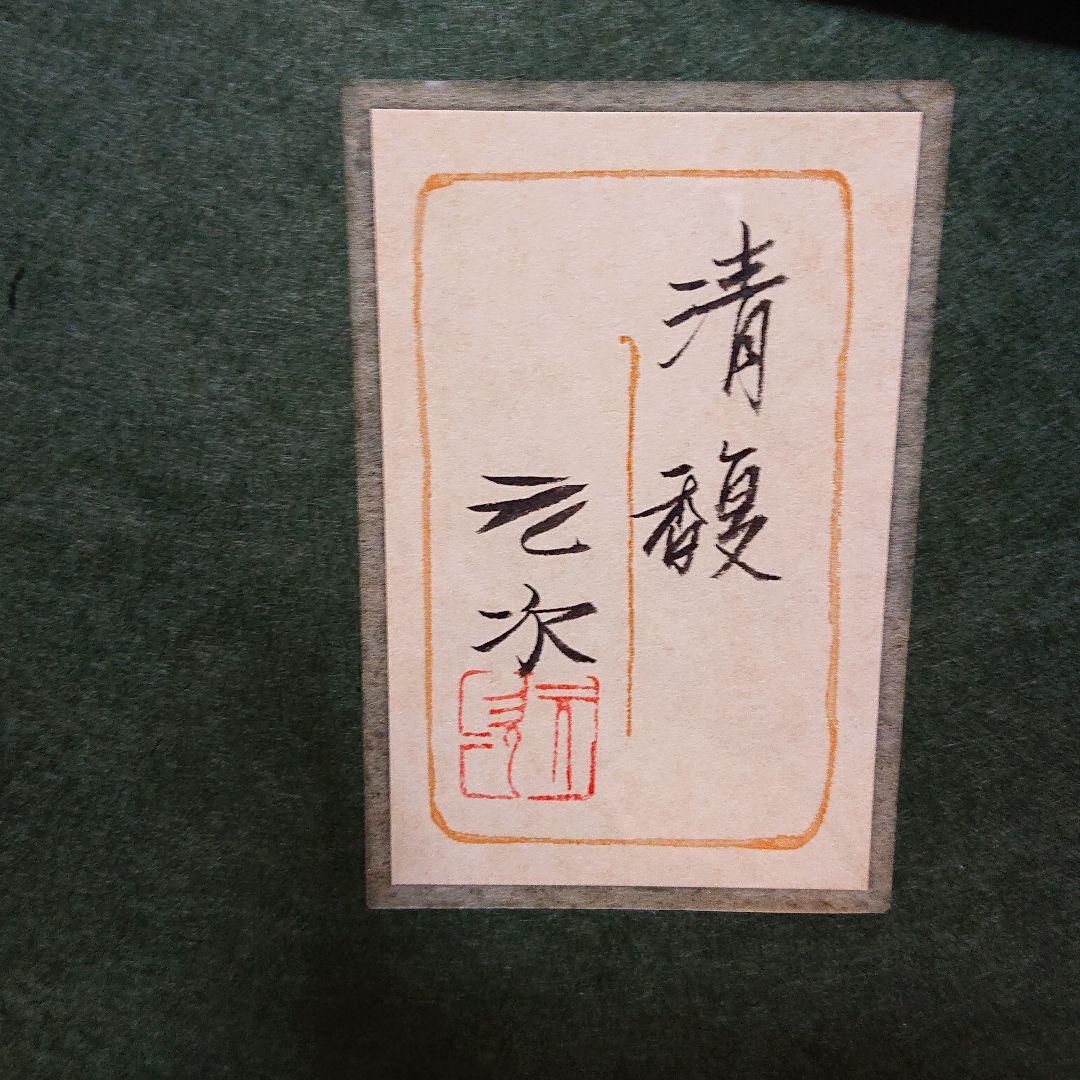 清馥
元次